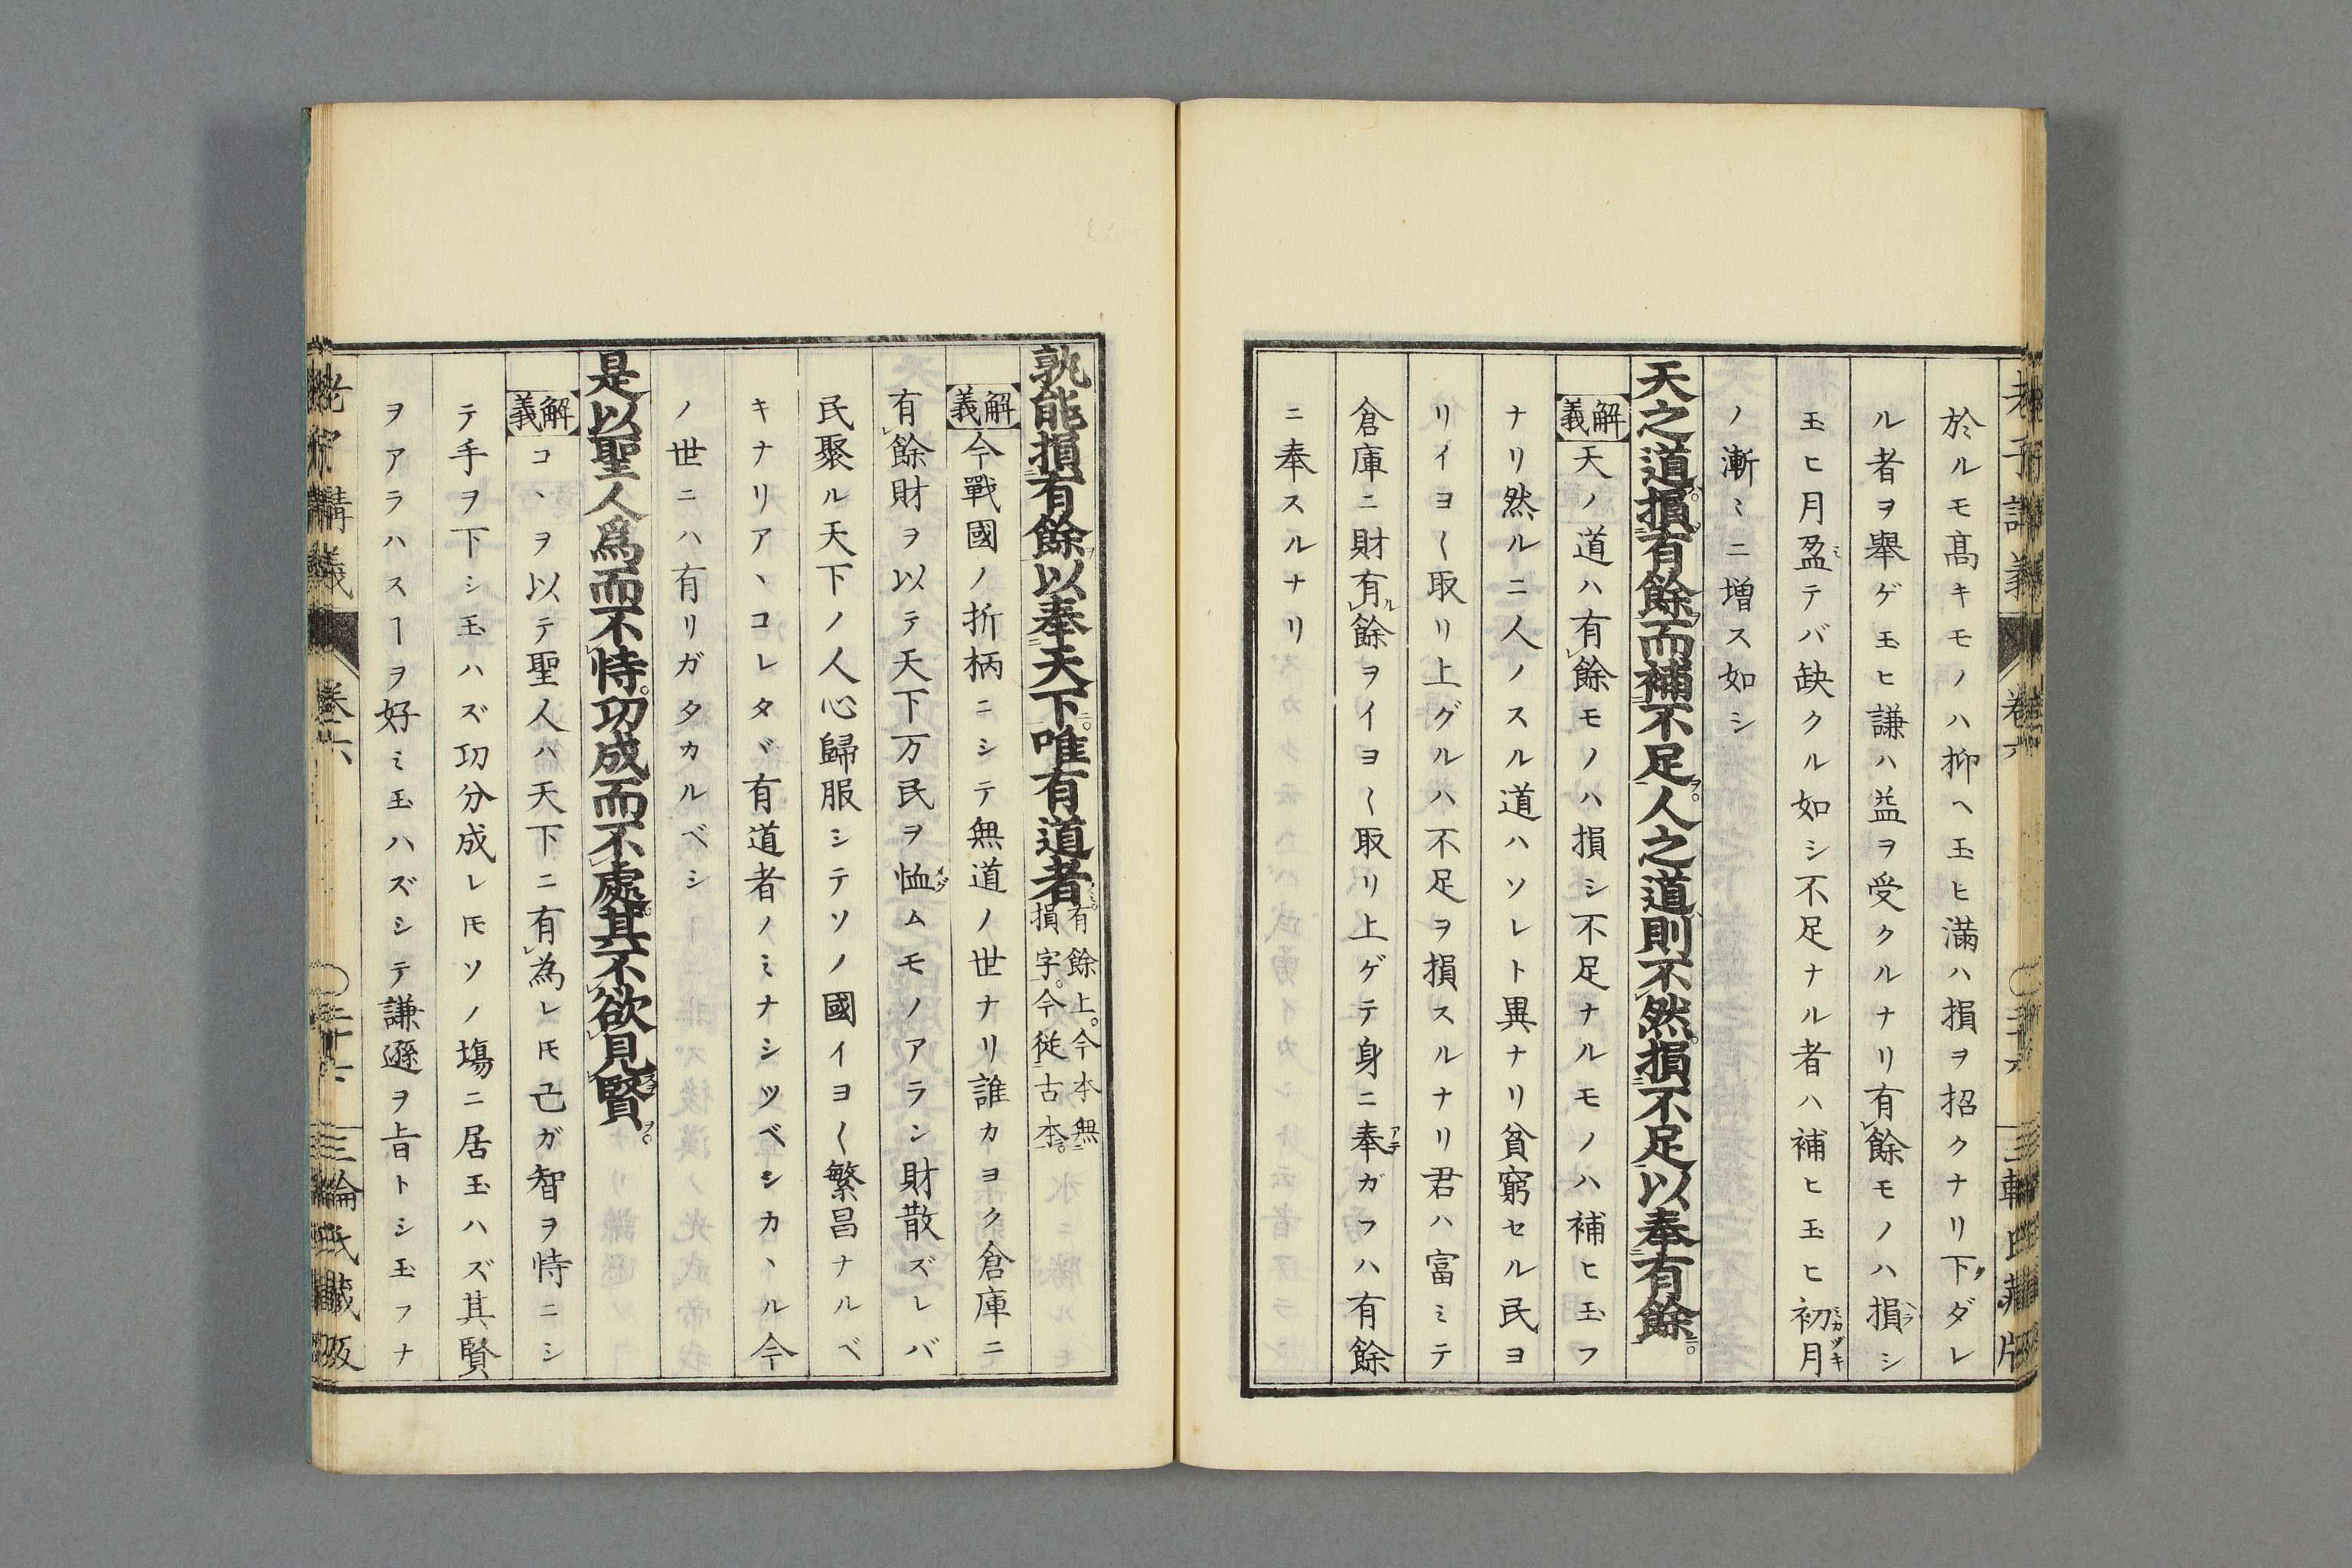 於ルモ高キモノハ抑ヘ玉ヒ滿ハ損ヲ招クナリ下ダレ
ル者ヲ舉ゲ玉ヒ謙ハ益ヲ受クルナリ有餘モノハ損シ
玉ヒ月盈テバ缺クル如シ不足ナル者ハ補ヒ玉ヒ初月
ノ漸〻ニ増ス如シ
天之道損有餘而補不足人之道則不然損不足以奉有餘
解義 天ノ道ハ有餘モノハ損シ不足ナルモノハ補ヒ玉フ
ナリ然ルニ人ノスル道ハソレト異ナリ貧窮セル民ヨ
リイヨ〱取リ上グルハ不足ヲ損スルナリ君ハ富ミテ
倉庫ニ財有餘ヲイヨ〱取リ上ゲテ身ニ奉ガフハ有餘
ニ奉スルナリ
孰能損有餘以奉天下唯有道者 有餘上今本無損字今從古本
解義 今戰國ノ折柄ニシテ無道ノ世ナリ誰カヨク倉庫ニ
有餘財ヲ以テ天下万民ヲ恤ムモノアラン財散ズレバ
民聚ル天下ノ人心歸服シテソノ國イヨ〱繁昌ナルベ
キナリアヽコレタヾ有道者ノミナシツベシカヽル今
ノ世ニハ有リガタカルベシ
是以聖人爲而不恃功成而不處其不欲見賢
解義 コヽヲ以テ聖人ハ天下ニ有為レ𪜈己ガ智ヲ恃ニシ
テ手ヲ下シ玉ハズ功分成レ𪜈ソノ塲ニ居玉ハズ其賢
ヲアラハスヿヲ好ミ玉ハズシテ謙遜ヲ旨トシ玉フナ